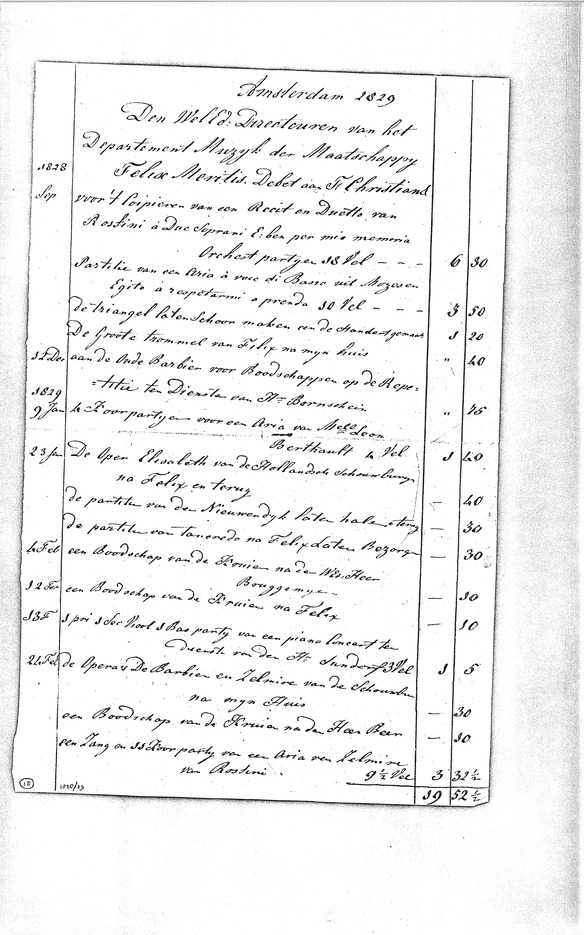 Amsterdam 1829
Den WelEd: Directeuren van het
Departement Muzyk der Maatschappy
1828 Felix Meritis. Debet aan F Christiani
Sep voor 't Copieren van een Recit en Duetto van
Rossini à Due Soprani E: ben per mio memoria
Orchest partyen 18 Vel - - - 6 30
Partitie van een Aria à voce di Basso uit Mozes en
Egito à respetarmi o prenda 10 Vel - - - 3 50
de triangel laten Schoon maken en de Standert gemaak 1 20
De Groote trommel van Felix na myn huis " 40
12 Dec aan de Oude Barbier voor Boodschappen op de Repe=
=titie ten Dienste van Hr Bornschein " 75
1829
9 Jan 4 Koor partyen voor een Aria van Mell Leon
Berthault 4 Vel 1 40
23 Jan De Oper Elisabeth van de Hollandsche Schouwburg
na Felix en terug — 40
de partitie van den Nieuwendyk laten halen terug — 30
de partitie van tancredo na Felix Laten Bezorgen — 30
4 Feb een Boodschap van de Kruier na den Heer
Bruggemyer — 10
12 Feb een Boodschap van de Kruier na Felix — 10
13 F 1 pri 1 Sec Viool 1 Bas party van een piano Concert ten
dienste van den Hr 3 Vel 1 5
24 Feb de Opera's De Barbier en Zelmire van de Schouwburg
na myn Huis — 30
een Boodschap van de Kruier na den Heer Beer — 10
een Zang en 11 Koor party van een Aria van Zelmire
van Rossini. 9½ Vel 3 32½
19 52½
18 1828/29